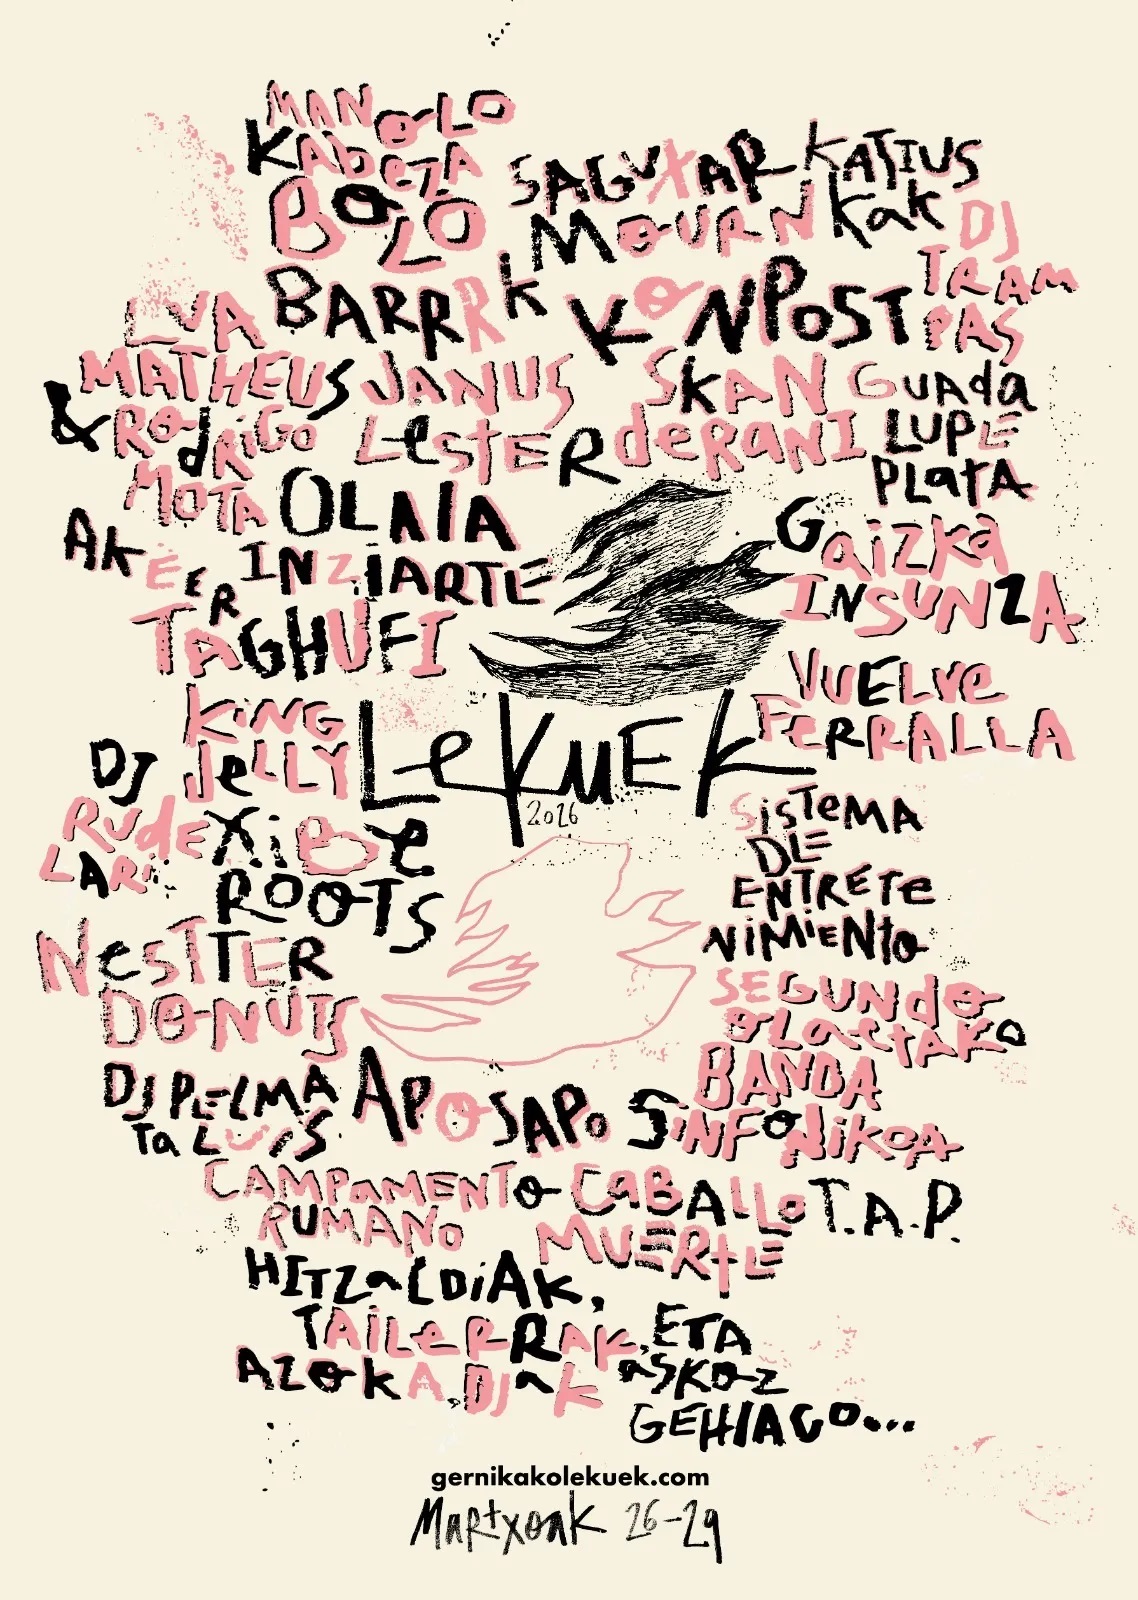 MANOLO
KABEZA
BOLO
SAGUXAR
KATIUS
KAK
MOURN
DJ
TRAM
PAS
LVA
BARRRK
KONPOST
MATHEUS
& RODRIGO
MOTA
JANUS
LESTER
SKAN
DERANI
GUADA
LUPE
PLATA
OLAIA
INZIARTE
AKEER
TAGHUFI
GAIZKA
INSUNZA
KING
JELLY
LEKUEK
2026
VUELVE
FERRALLA
DJ
RUDE
LARI
XIBE
ROOTS
SISTEMA
DE
ENTRETE
NIMIENTO
NESTTER
DONUTS
SEGUNDO
OLAETAKO
BANDA
SINFONIKOA
DJ PELMA
TA LUIS
APOSAPO
CAMPAMENTO
RUMANO
CABALLO
MUERTE
T.A.P.
HITZALDIAK,
TAILERRAK, ETA
AZOKA, DJAK ASKOZ
GEHIAGO...
gernikakolekuek.com
MARTXOAK 26-29